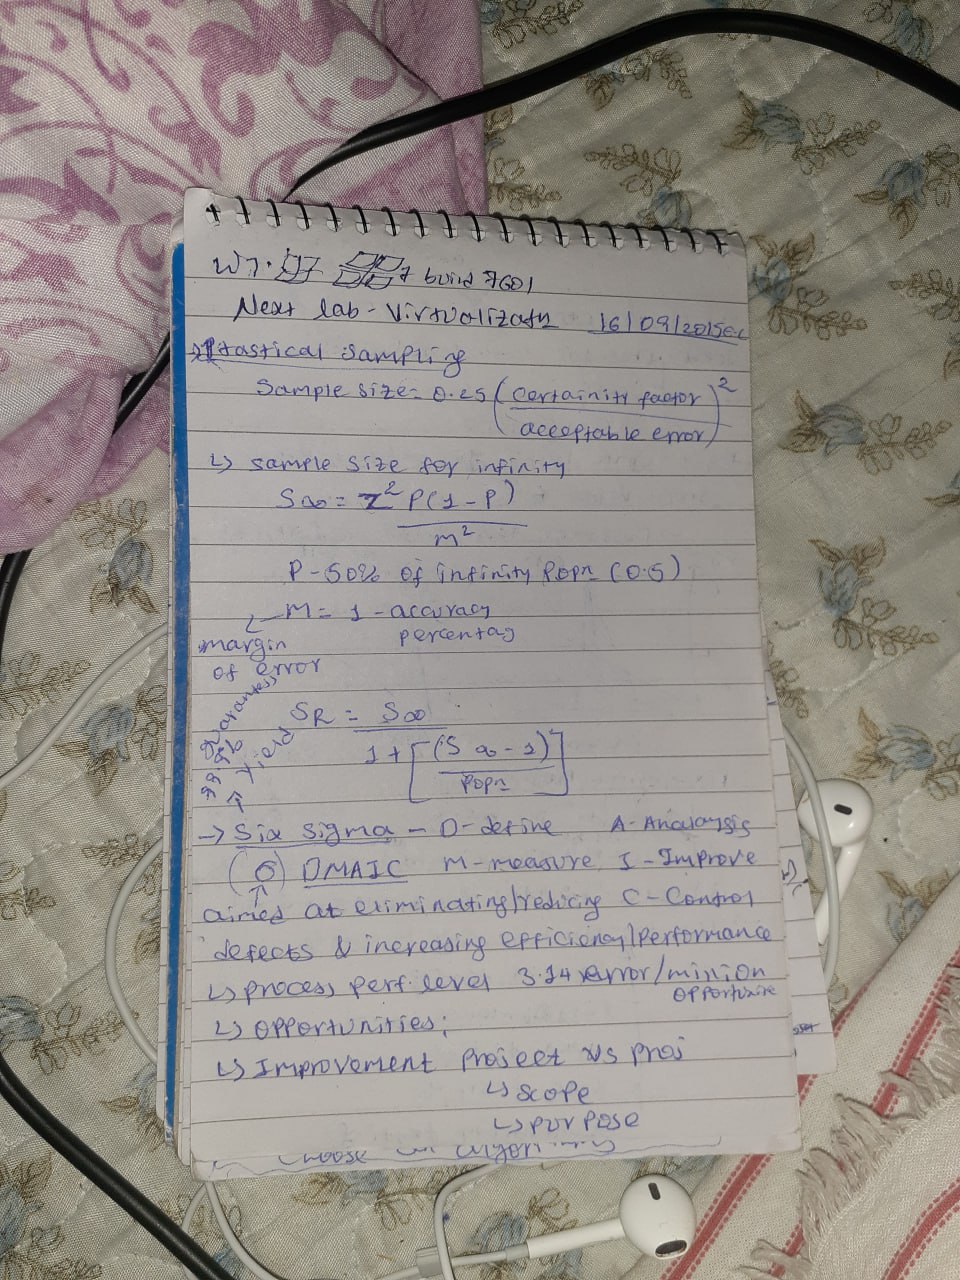 W7. 7 build 7601
Next lab - Virtualizatn 16/09/2015 E.C
Stastical Sampling
Sample size = 0.25 (certainity factor / acceptable error)²
↳ sample size for infinity
S∞ = Z² P(1-P)
m²
P - 50% of infinity Popn (0.5)
M = 1 - accuracy
percentag
margin
of error
SR = S∞
1 + [(S∞ - 1)
Popn]
99.99% guarantess
yield
→ Six Sigma - D-define A-Analaysis
(σ) DMAIC M-measure I-Improve
aimed at eliminating/reducing C-Control
defects & increasing efficiency/performance
↳ process perf. level 3.14 error/million
opportunite
↳ opportunities;
↳ Improvement project vs proj
↳ scope
↳ purpose
choose